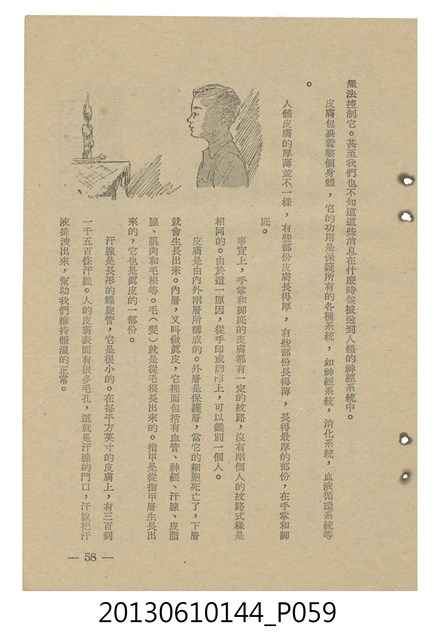 無法控制它。甚至我們也不知道這些消息在什麼時候被送到人體的神經系統中。
皮膚包裹着整個身體，它的功用是保護所有的各種系統，如神經系統，消化系統，血液循環系統等
。
人體皮膚的厚薄並不一樣，有些部份皮膚長得厚，有些部份長得薄，長得最厚的部份，在手掌和脚
底。
事實上，手掌和脚底的皮膚都有一定的紋路，沒有兩個人的紋路式樣是
相同的。由於這一原因，從手印或脚印上，可以鑑別一個人。
皮膚是由內外兩層所構成的。外層是保護層，當它的細胞死亡了，下層
就會生長出來。內層，又叫做眞皮，它裡面包括有血管、神經、汗腺、皮脂
腺、肌肉和毛根等。毛（髮）就是從毛根長出來的。指甲是從指甲層生長出
來的，它也是眞皮的一部份。
汗腺是長形的螺旋管，它是很小的。在每平方英寸的皮膚上，有三百到
一千五百條汗腺。人的皮膚表面有很多毛孔，這就是汗腺的門口，汗腺把汗
液排洩出來，幫助我們維持體溫的正常。
— 58 —
20130610144_P059